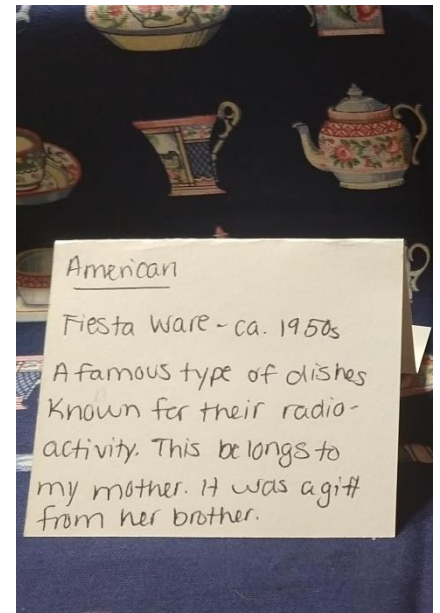 American
Fiesta Ware - ca. 1950s
A famous type of dishes
Known for their radio-
activity. This belongs to
my mother. It was a gift
from her brother.